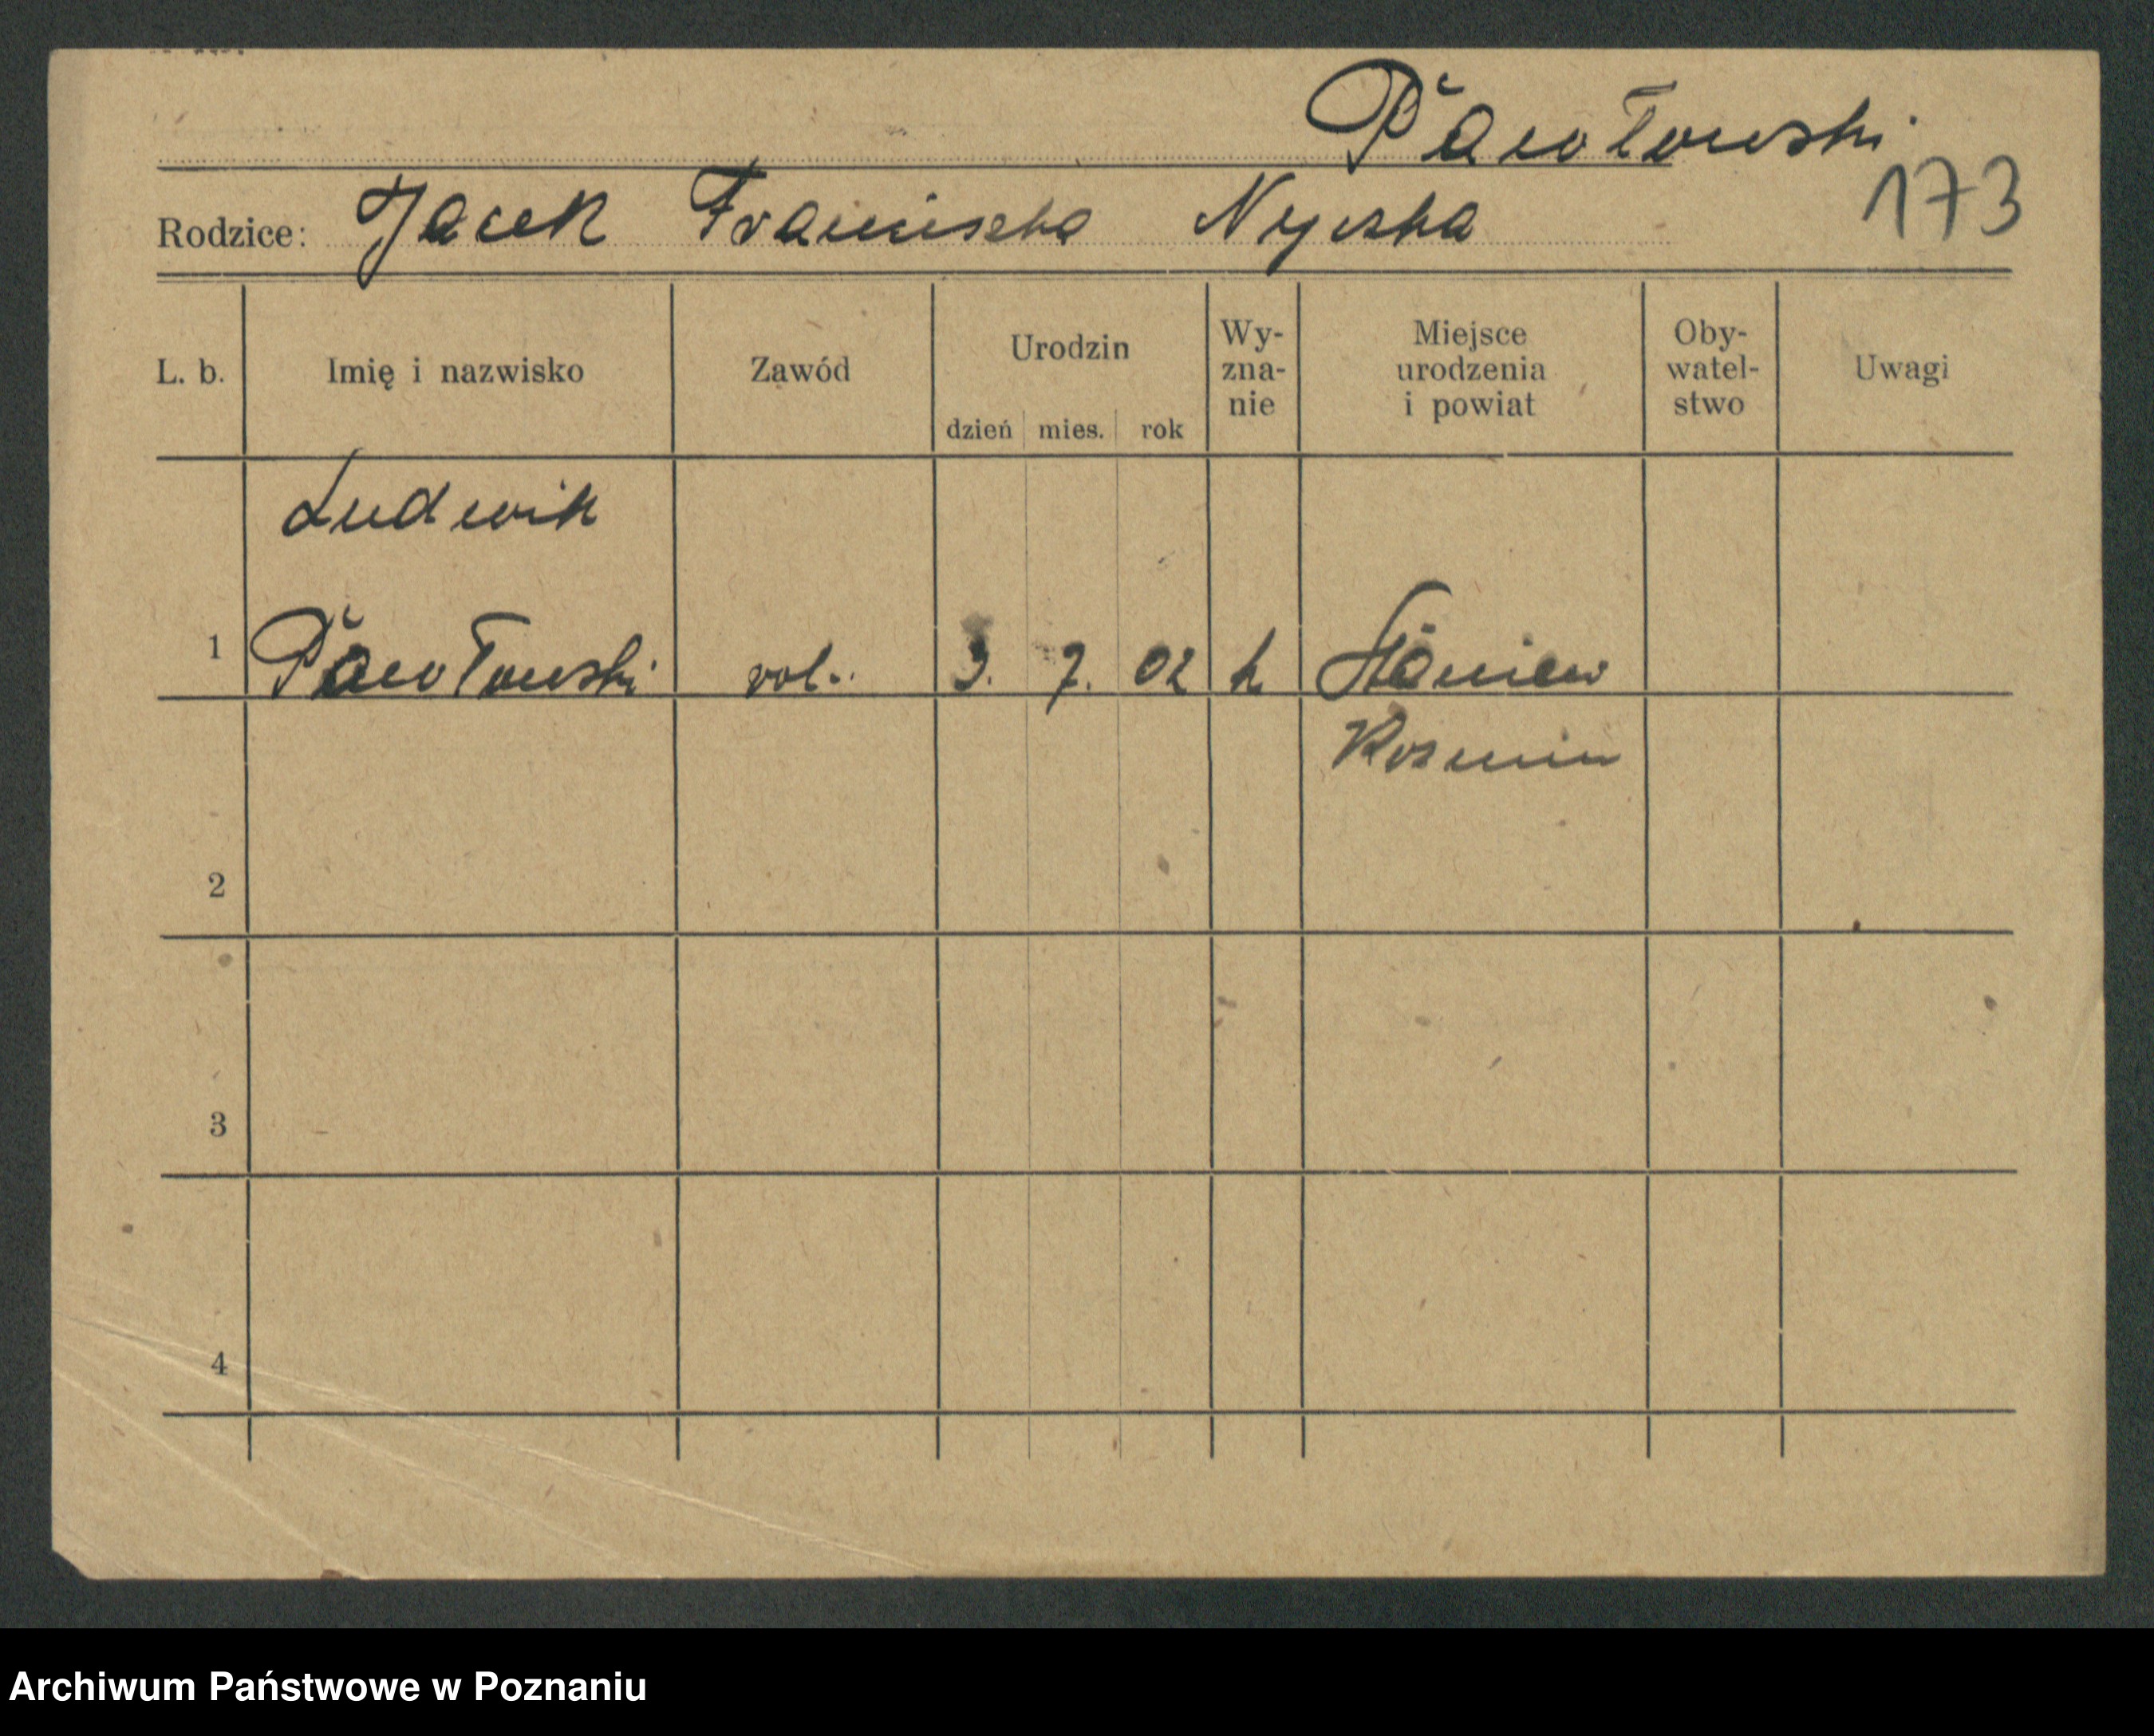 Pawłowski
173
Rodzice: Jacek Franciszka Nyczka
L. b. Imię i nazwisko Zawód Urodzin dzień mies. rok Wy-zna-nie Miejsce urodzenia i powiat Oby-watel-stwo Uwagi
Ludwik
1 Pawłowski rol. 3. 7. 02 k Staniew
Kozmin
2
3
4
Archiwum Państwowe w Poznaniu